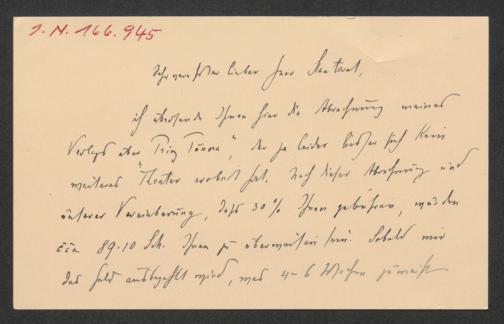 J.N. 166.945
Sehr verehrter lieber Herr
ich übersende Ihnen hier die Abrechnung meines
Verlags über "Prinz Tunora", der ja leider bisher sich kein
weiteres Theater erobert hat. Nach dieser Abrechnung und
unserer Vereinbarung, dass 30% Ihnen gebühren, würden
89.10 Sch. Ihnen zu überweisen sein. Sobald mir
das Geld ausbezahlt wird, was 4-6 Wochen